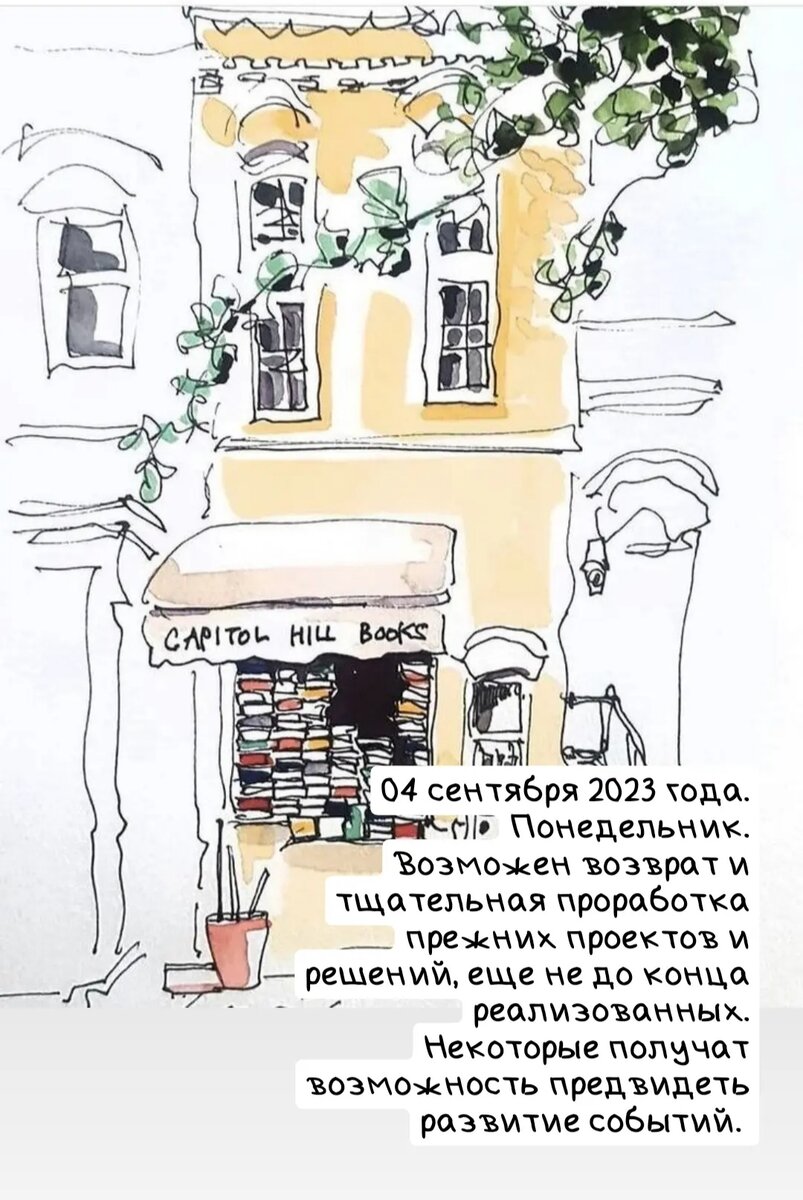 CAPITOL HILL BOOKS
04 сентября 2023 года.
Понедельник.
Возможен возврат и
тщательная проработка
прежних проектов и
решений, еще не до конца
реализованных.
Некоторые получат
возможность предвидеть
развитие событий.